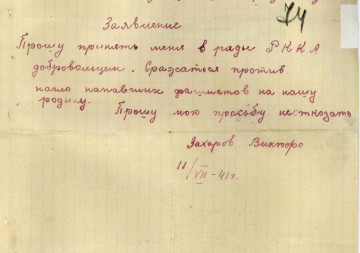 74
Заявление
Прошу принять меня в ряды РККА
добровольцем. Сражаться против
нагло напавших фашистов на нашу
родину.
Прошу мою прозьбу не отказать
Захаров Викторо
11/VII-41г.